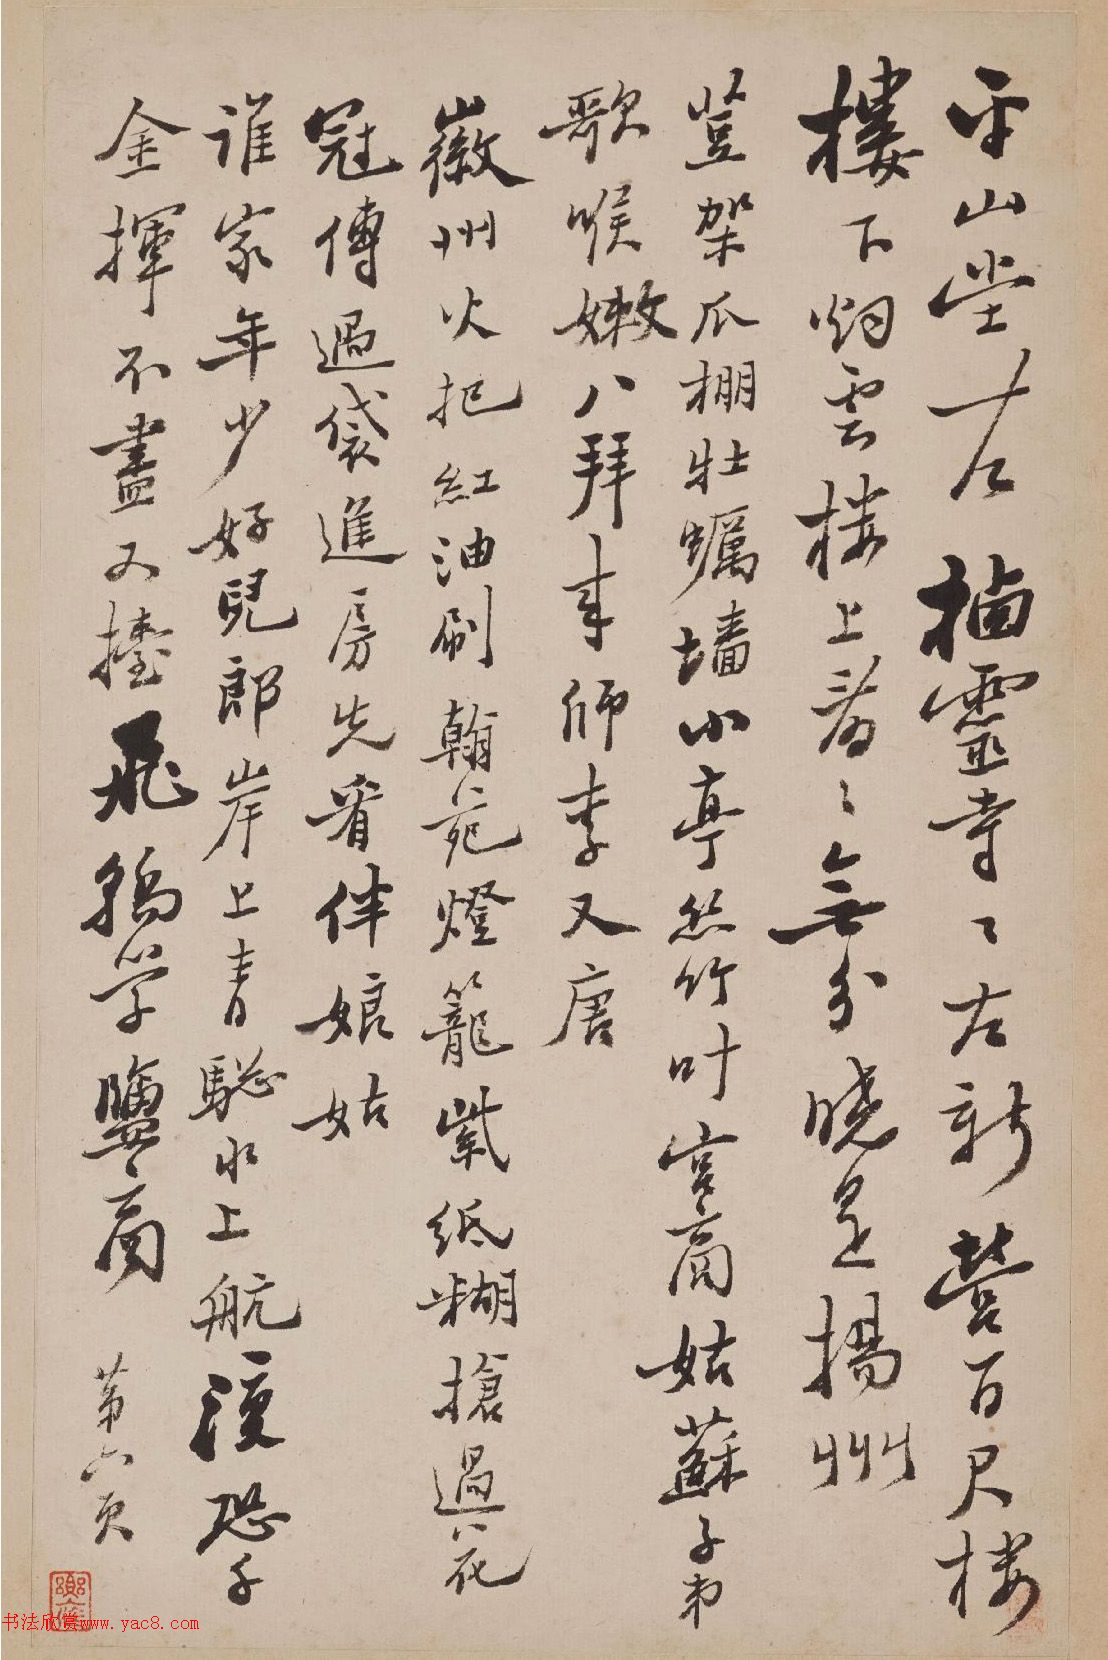 平山堂左栖靈寺〻左新營百尺楼
樓下烟雲楼上看〻無分曉是揚州
荳架瓜棚牡蠣墙小亭丝竹叶宫商姑蘇子弟
歌喉嫩八拜来師李又唐
徽州火把紅油刷翰苑燈籠紫紙糊搶過花
冠傳過袋進房先看伴娘姑
誰家年少好兒郎岸上青驄水上航凌恐千
金揮不盡又擡飛轎学鹽商
第六页
书法欣赏www.yac8.com